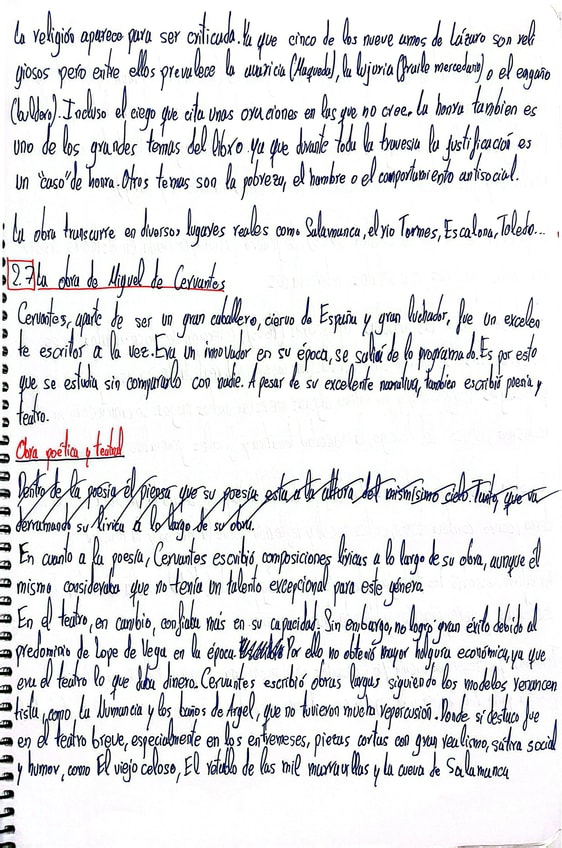 La religión aparece para ser criticada. Ya que cinco de los nueve amos de Lázaro son reli
giosos pero entre ellos prevalece la avaricia (Maqueda), la lujuria (fraile mercedario) o el engaño
(buldero). Incluso el ciego que cita unas oraciones en las que no cree. La honra tambien es
uno de los grandes temas del libro ya que durante toda la travesia la justificación es
un "caso" de honra. Otros temas son la pobreza, el hambre o el comportamiento antisocial.
La obra transcurre en diversos lugares reales como Salamanca, el río Tormes, Escalona, Toledo...
2.7 La obra de Miguel de Cervantes
Cervantes, aparte de ser un gran caballero, ciervo de España y gran luchador, fue un excelen
te escritor a la vez. Era un innovador en su época, se salía de lo programado. Es por esto
que se estudia sin compararlo con nadie. A pesar de su excelente narrativa, tambien escribió poesía y
teatro.
Obra poética y teatral
Dentro de la poesía él piensa que su poesía esta a la altura del mismísimo cielo. Tanto, que va
derramando su lírica a lo largo de su obra.
En cuanto a la poesía, Cervantes escribió composiciones líricas a lo largo de su obra, aunque él
mismo consideraba que no tenía un talento excepcional para este género.
En el teatro, en cambio, confiaba más en su capacidad. Sin embargo, no logró gran éxito debido al
predominio de Lope de Vega en la época. Por ello no obtenió mayor holgura económica, ya que
era el teatro lo que daba dinero. Cervantes escribió obras largas siguiendo los modelos renacen
tista, como La Numancia y los baños de Argel, que no tuvieron mucha repercusión. Donde sí destacó fue
en el teatro breve, especialmente en los entremeses, piezas cortas con gran realismo, sátira social
y humor, como El viejo celoso, El retablo de las mil maravillas y la cueva de Salamanca